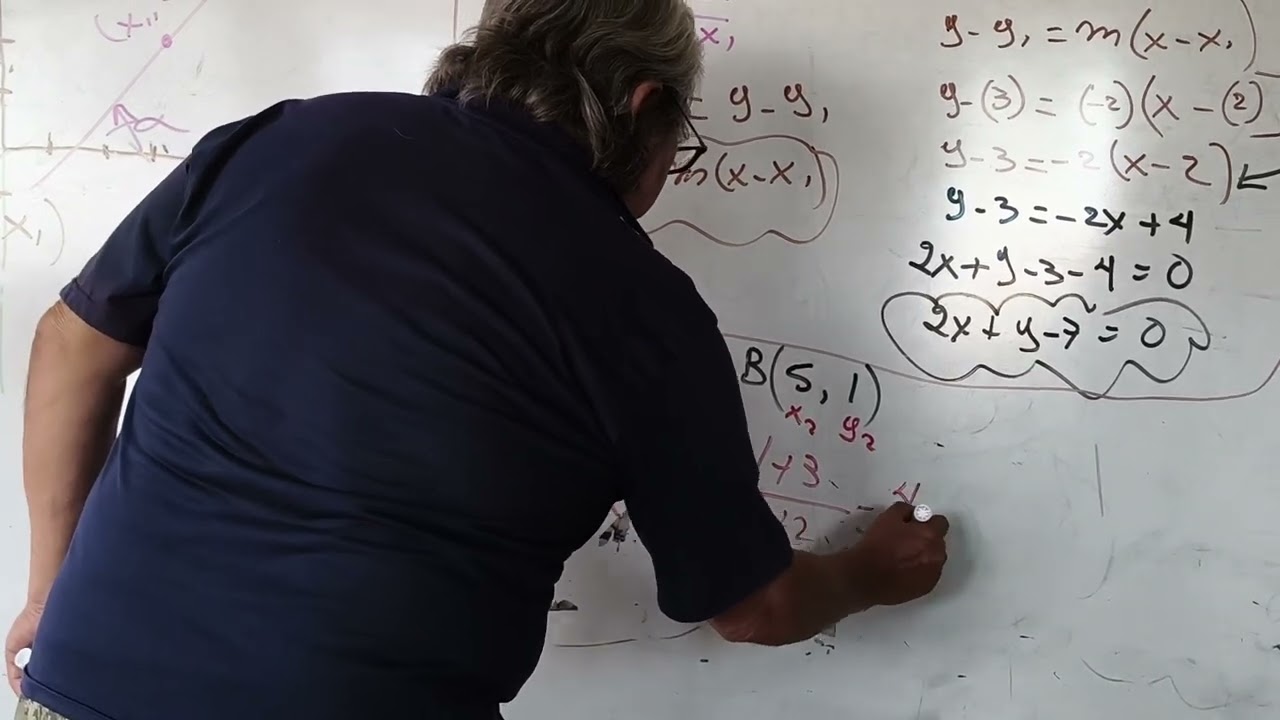 (x₁,
x₁
= y - y₁
m(x - x₁)
x₁)
y - y₁ = m(x - x₁)
y - (3) = (-2)(x - (2)
y - 3 = -2(x - 2)
y - 3 = -2x + 4
2x + y - 3 - 4 = 0
2x + y - 7 = 0
B(5, 1)
x₂ y₂
1 + 3
2 = 4